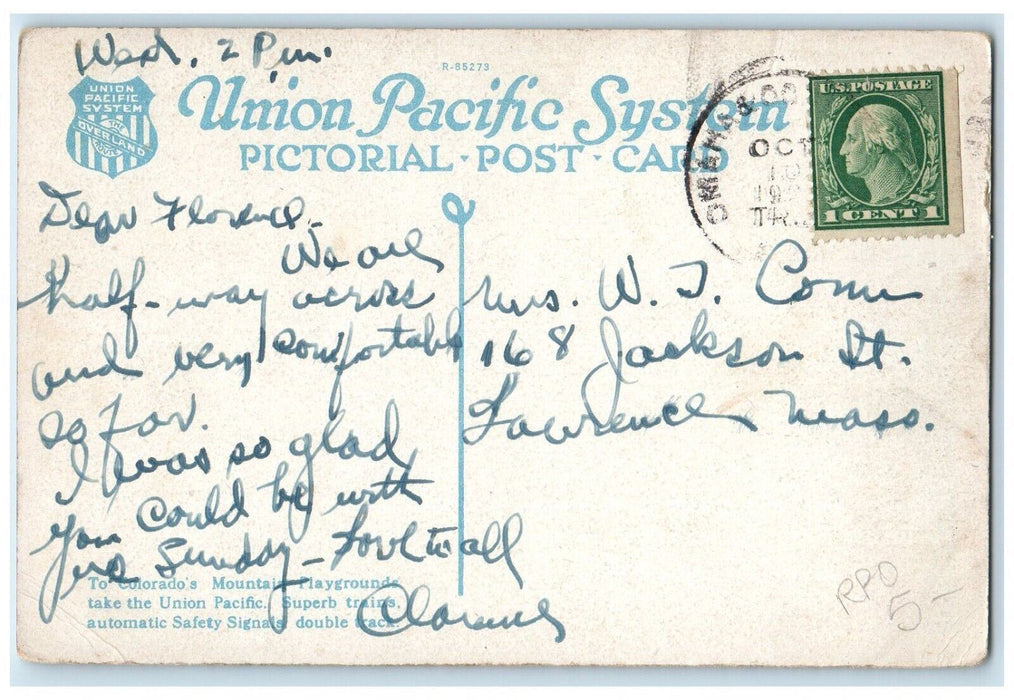 Wed. 2 P.m.
R-85273
UNION
PACIFIC
SYSTEM
THE
OVERLAND
ROUTE
Union Pacific System
PICTORIAL · POST · CARD
OMAHA &
OCT
10
19
TR.
U.S. POSTAGE
1 CENT 1
Dear Florence -
We are
half-way across
and very comfortable
so far.
I was so glad
you could be with
us Sunday - Love to all
Clarence
Mrs. W. J.
168 Jackson St.
Lawrence Mass.
To Colorado's Mountain Playgrounds
take the Union Pacific. Superb trains,
automatic Safety Signals, double track.
RPO
5-